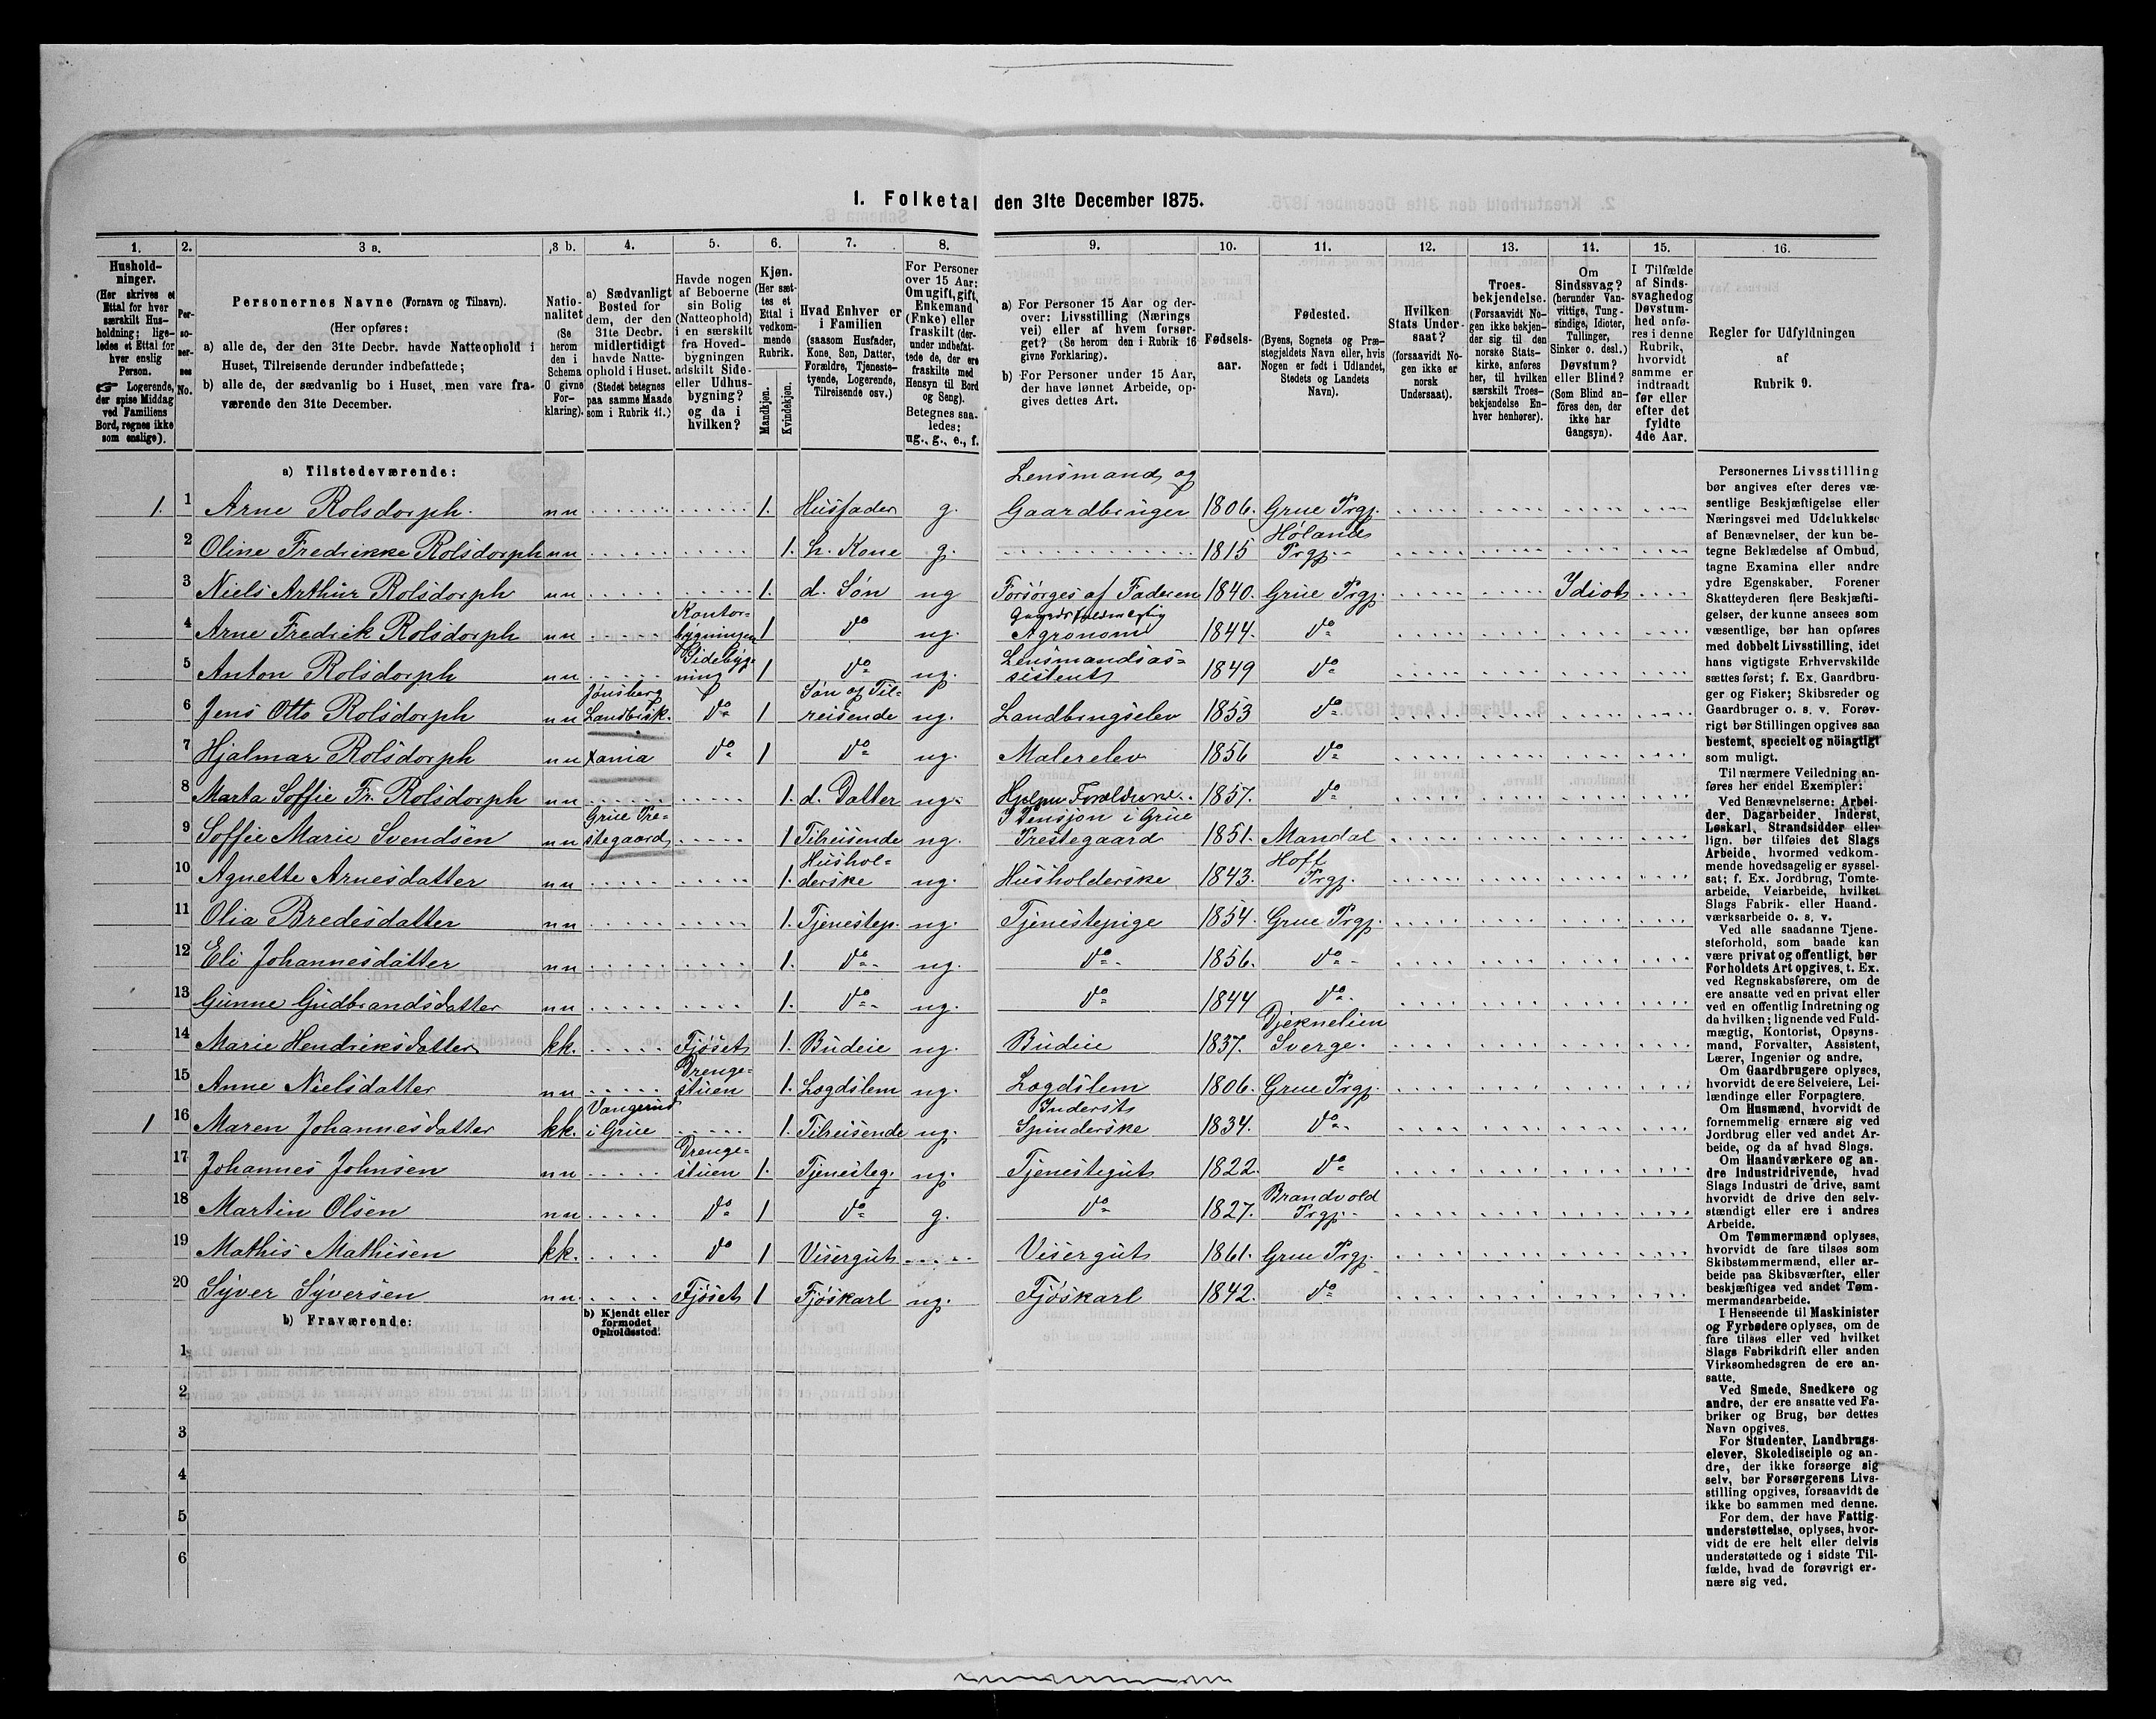 I. Folketal den 31te December 1875.
1. 2. 3 a. 3 b. 4. 5. 6. 7. 8. 9. 10. 11. 12. 13. 14. 15. 16.
Hushold-
ninger.
(Her skrives et
Ettal for hver
særskilt Hus-
holdning; lige-
ledes et Ettal for
hver enslig
Person.
☞ Logerende,
der spise Middag
ved Familiens
Bord, regnes ikke
som enslige).
Per-
so-
ner-
nes
No.
Personernes Navne (Fornavn og Tilnavn).
(Her opføres:
a) alle de, der den 31te Decbr. havde Natteophold i
Huset, Tilreisende derunder indbefattede;
b) alle de, der sædvanlig bo i Huset, men vare fra-
værende den 31te December.
Natio-
nalitet
(Se
herom
den i
Schema
O givne
For-
klaring).
a) Sædvanligt
Bosted for
dem, der den
31te Decbr.
midlertidigt
havde Natte-
ophold i Huset.
(Stedet betegnes
paa samme Maade
som i Rubrik 11.)
Havde nogen
af Beboerne
sin Bolig
(Natteophold)
i en særskilt
fra Hoved-
bygningen
adskilt Side-
eller Udhus-
bygning?
og da i
hvilken?
Kjøn.
(Her sæt-
tes et
Ettal i
vedkom-
mende
Rubrik.
Mandkjøn.
Kvindekjøn.
Hvad Enhver er
i Familien
(saasom Husfader,
Kone, Søn, Datter,
Forældre, Tjeneste-
tyende, Logerende,
Tilreisende osv.)
For Personer
over 15 Aar:
Om ugift, gift,
Enkemand
(Enke) eller
fraskilt (der-
under indbefat-
tede de, der ere
fraskilte med
Hensyn til Bord
og Seng).
Betegnes saa-
ledes:
ug., g., e., f.
a) For Personer 15 Aar og der-
over: Livsstilling (Nærings
vei) eller af hvem forsør-
get? (Se herom den i Rubrik 16
givne Forklaring).
b) For Personer under 15 Aar,
der have lønnet Arbeide, op-
gives dettes Art.
Fødsels-
aar.
Fødested.
(Byens, Sognets og Præ-
stegjeldets Navn eller, hvis
Nogen er født i Udlandet,
Stedets og Landets
Navn).
Hvilken
Stats Under-
saat?
(forsaavidt No-
gen ikke er
norsk
Undersaat).
Troes-
bekjendelse.
(Forsaavidt No-
gen ikke bekjen-
der sig til den
norske Stats-
kirke, anføres
her, til hvilken
særskilt Troes-
bekjendelse En-
hver henhører).
Om
Sindssvag?
(herunder Van-
vittige, Tung-
sindige, Idioter,
Tullinger,
Sinker o. desl.)
Døvstum?
eller Blind?
(Som Blind an-
føres den, der
ikke har
Gangsyn).
I Tilfælde
af Sinds-
svaghed og
Døvstum-
hed anfø-
res i denne
Rubrik,
hvorvidt
samme er
indtraadt
før eller
efter det
fyldte
4de Aar.
Regler for Udfyldningen
af
Rubrik 9.
a) Tilstedeværende:
1. 1 Arne Rolsdorph. nn 1. Husfader g. Lensmand og Gaardbruger 1806. Grue Prgj.
2 Oline Fredrikke Rolsdorph nn 1. h. Kone g. 1815 Holands Prgj.
3 Niels Arthur Rolsdorph nn 1. d. Søn ug Forsørges af Faderen 1840. Grue Prgj. Idiot
4 Arne Fredrik Rolsdorph nn Kontor-bygningen 1 do ug. Agronom 1844. do
5 Anton Rolsdorph nn Sidebyg-ning 1 do ug. Lensmandsas-sistent 1849 do
6 Jens Otto Rolsdorph nn Jønsberg Landbrsk. do 1 Søn og Til-reisende ug. Landbrugselev 1853 do
7 Hjalmar Rolsdorph nn Xania do 1 do ug. Malerelev 1856 do
8 Marta Soffie Fr. Rolsdorph nn 1. d. Datter ug. Hjelper Forældrene 1857. do
9 Soffie Marie Svendsen nn Grue Pre-stegaard 1 Tilreisende ug. I Pensjon i Grue Prestegaard 1851. Mandal
10 Agnette Arnesdatter nn 1. Hushol-derske ug. Husholderske 1843. Hoff Prgj.
11 Olia Bredesdatter nn 1. Tjenestep. ug. Tjenestepige 1854. Grue Prgj.
12 Eli Johannesdatter nn 1. do ug. do 1856. do
13 Gunne Gudbrandsdatter nn 1. do ug. do 1844 do
14 Marie Hendriksdatter kk. Fjøset 1. Budeie ug. Budeie 1837. Sverge.
15 Anne Nielsdatter nn Drenge-stuen 1. Lægdslem ug. Lægdslem 1806. Grue Prgj.
1 16 Maren Johannesdatter kk. Vangerud i Grue 1. Tilreisende ug. Inderst Spinderske 1834. do
17 Johannes Johnsen nn Drenge-stuen 1. Tjenesteg. ug. Tjenestegut 1822. do
18 Martin Olsen nn do 1 do g. do 1827. Brandvold Prgj.
19 Mathis Mathisen kk. do 1 Visergut Visergut 1861. Grue Prgj.
20 Syver Syversen nn. Fjøset 1 Fjøskarl ug. Fjøskarl 1842. do
b) Fraværende:
b) Kjendt eller
formodet
Opholdssted.
1
2
3
4
5
6
Personernes Livsstilling
bør angives efter deres væ-
sentlige Beskjæftigelse eller
Næringsvei med Udelukkelse
af Benævnelser, der kun be-
tegne Beklædelse af Ombud,
tagne Examina eller andre
ydre Egenskaber. Forener
Skatteyderen flere Beskjæfti-
gelser, der kunne ansees som
væsentlige, bør han opføres
med dobbelt Livsstilling, idet
hans vigtigste Erhvervskilde
sættes først; f. Ex. Gaardbru-
ger og Fisker; Skibsreder og
Gaardbruger o. s. v. Forøv-
rigt bør Stillingen opgives saa
bestemt, specielt og nöiagtigt
som muligt.
Til nærmere Veiledning an-
føres her endel Exempler:
Ved Benævnelserne: Arbei-
der, Dagarbeider, Inderst,
Løskarl, Strandsidder eller
lign. bør tilføies det Slags
Arbeide, hvormed vedkom-
mende hovedsagelig er syssel-
sat; f. Ex. Jordbrug, Tomte-
arbeide, Veiarbeide, hvilket
Slags Fabrik- eller Haand-
værksarbeide o. s. v.
Ved alle saadanne Tjene-
steforhold, som baade kan
være privat og offentligt, bør
Forholdets Art opgives, t. Ex.
ved Regnskabsførere, om de
ere ansatte ved en privat eller
ved en offentlig Indretning og
da hvilken; lignende ved Fuld-
mægtig, Kontorist, Opsyns-
mand, Forvalter, Assistent,
Lærer, Ingeniør og andre.
Om Gaardbrugere oplyses,
hvorvidt de ere Selveiere, Lei-
lændinge eller Forpagtere.
Om Husmænd, hvorvidt de
fornemmelig ernære sig ved
Jordbrug eller ved andet Ar-
beide, og da af hvad Slags.
Om Haandværkere og an-
dre Industridrivende, hvad
Slags Industri de drive, samt
hvorvidt de drive den selv-
stændigt eller ere i andres
Arbeide.
Om Tømmermænd oplyses,
hvorvidt de fare tilsøs som
Skibstømmermænd, eller ar-
beide paa Skibsværfter, eller
beskjæftiges ved andet Tøm-
mermandsarbeide.
I Henseende til Maskinister
og Fyrbødere oplyses, om de
fare tilsøs eller ved hvilket
Slags Fabrikdrift eller anden
Virksomhedsgren de ere an-
satte.
Ved Smede, Snedkere og
andre, der ere ansatte ved Fa-
briker og Brug, bør dettes
Navn opgives.
For Studenter, Landbrugs-
elever, Skoledisciple og an-
dre, der ikke forsørge sig
selv, bør Forsørgerens Livs-
stilling opgives, forsaavidt de
ikke bo sammen med denne.
For dem, der have Fattig-
understøttelse, oplyses, hvor-
vidt de ere helt eller delvis
understøttede og i sidste Til-
fælde, hvad de forøvrigt er-
nære sig ved.